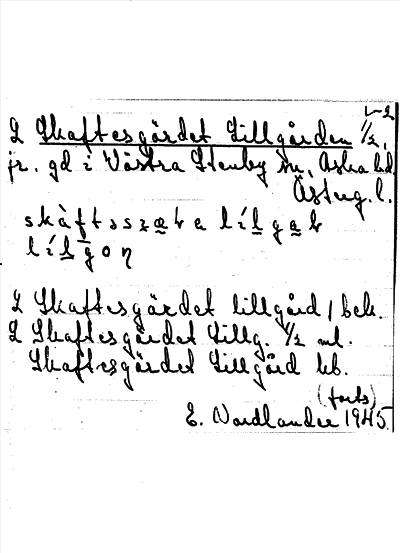 1-2
L Skaftesgärdet Lillgården 1/2,
jr. gd i Västra Stenby sn, Aska hd
Österg. l.
L Skaftesgärdet lillgård 1 bek.
L Skaftesgärdet Lillg. 1/2 ml.
Skaftesgärdet Lillgård kb.
(forts)
E. Nordlander 1945.